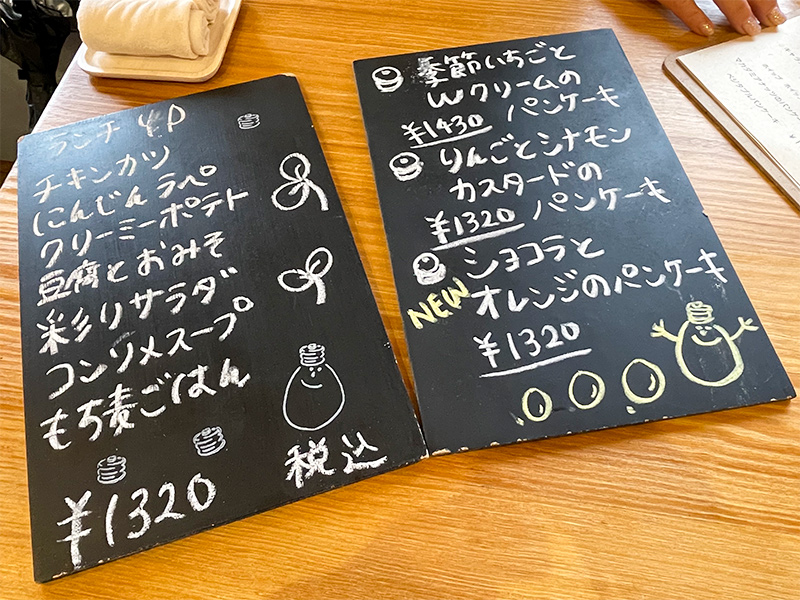 ランチ
チキンカツ
にんじんラペ
クリーミーポテト
豆腐とおみそ
彩りサラダ
コンソメスープ
もち麦ごはん
税込
¥1320
季節いちごと
Wクリームの
パンケーキ
¥1430
りんごとシナモン
カスタードの
パンケーキ
¥1320
ショコラと
NEW
オレンジのパンケーキ
¥1320